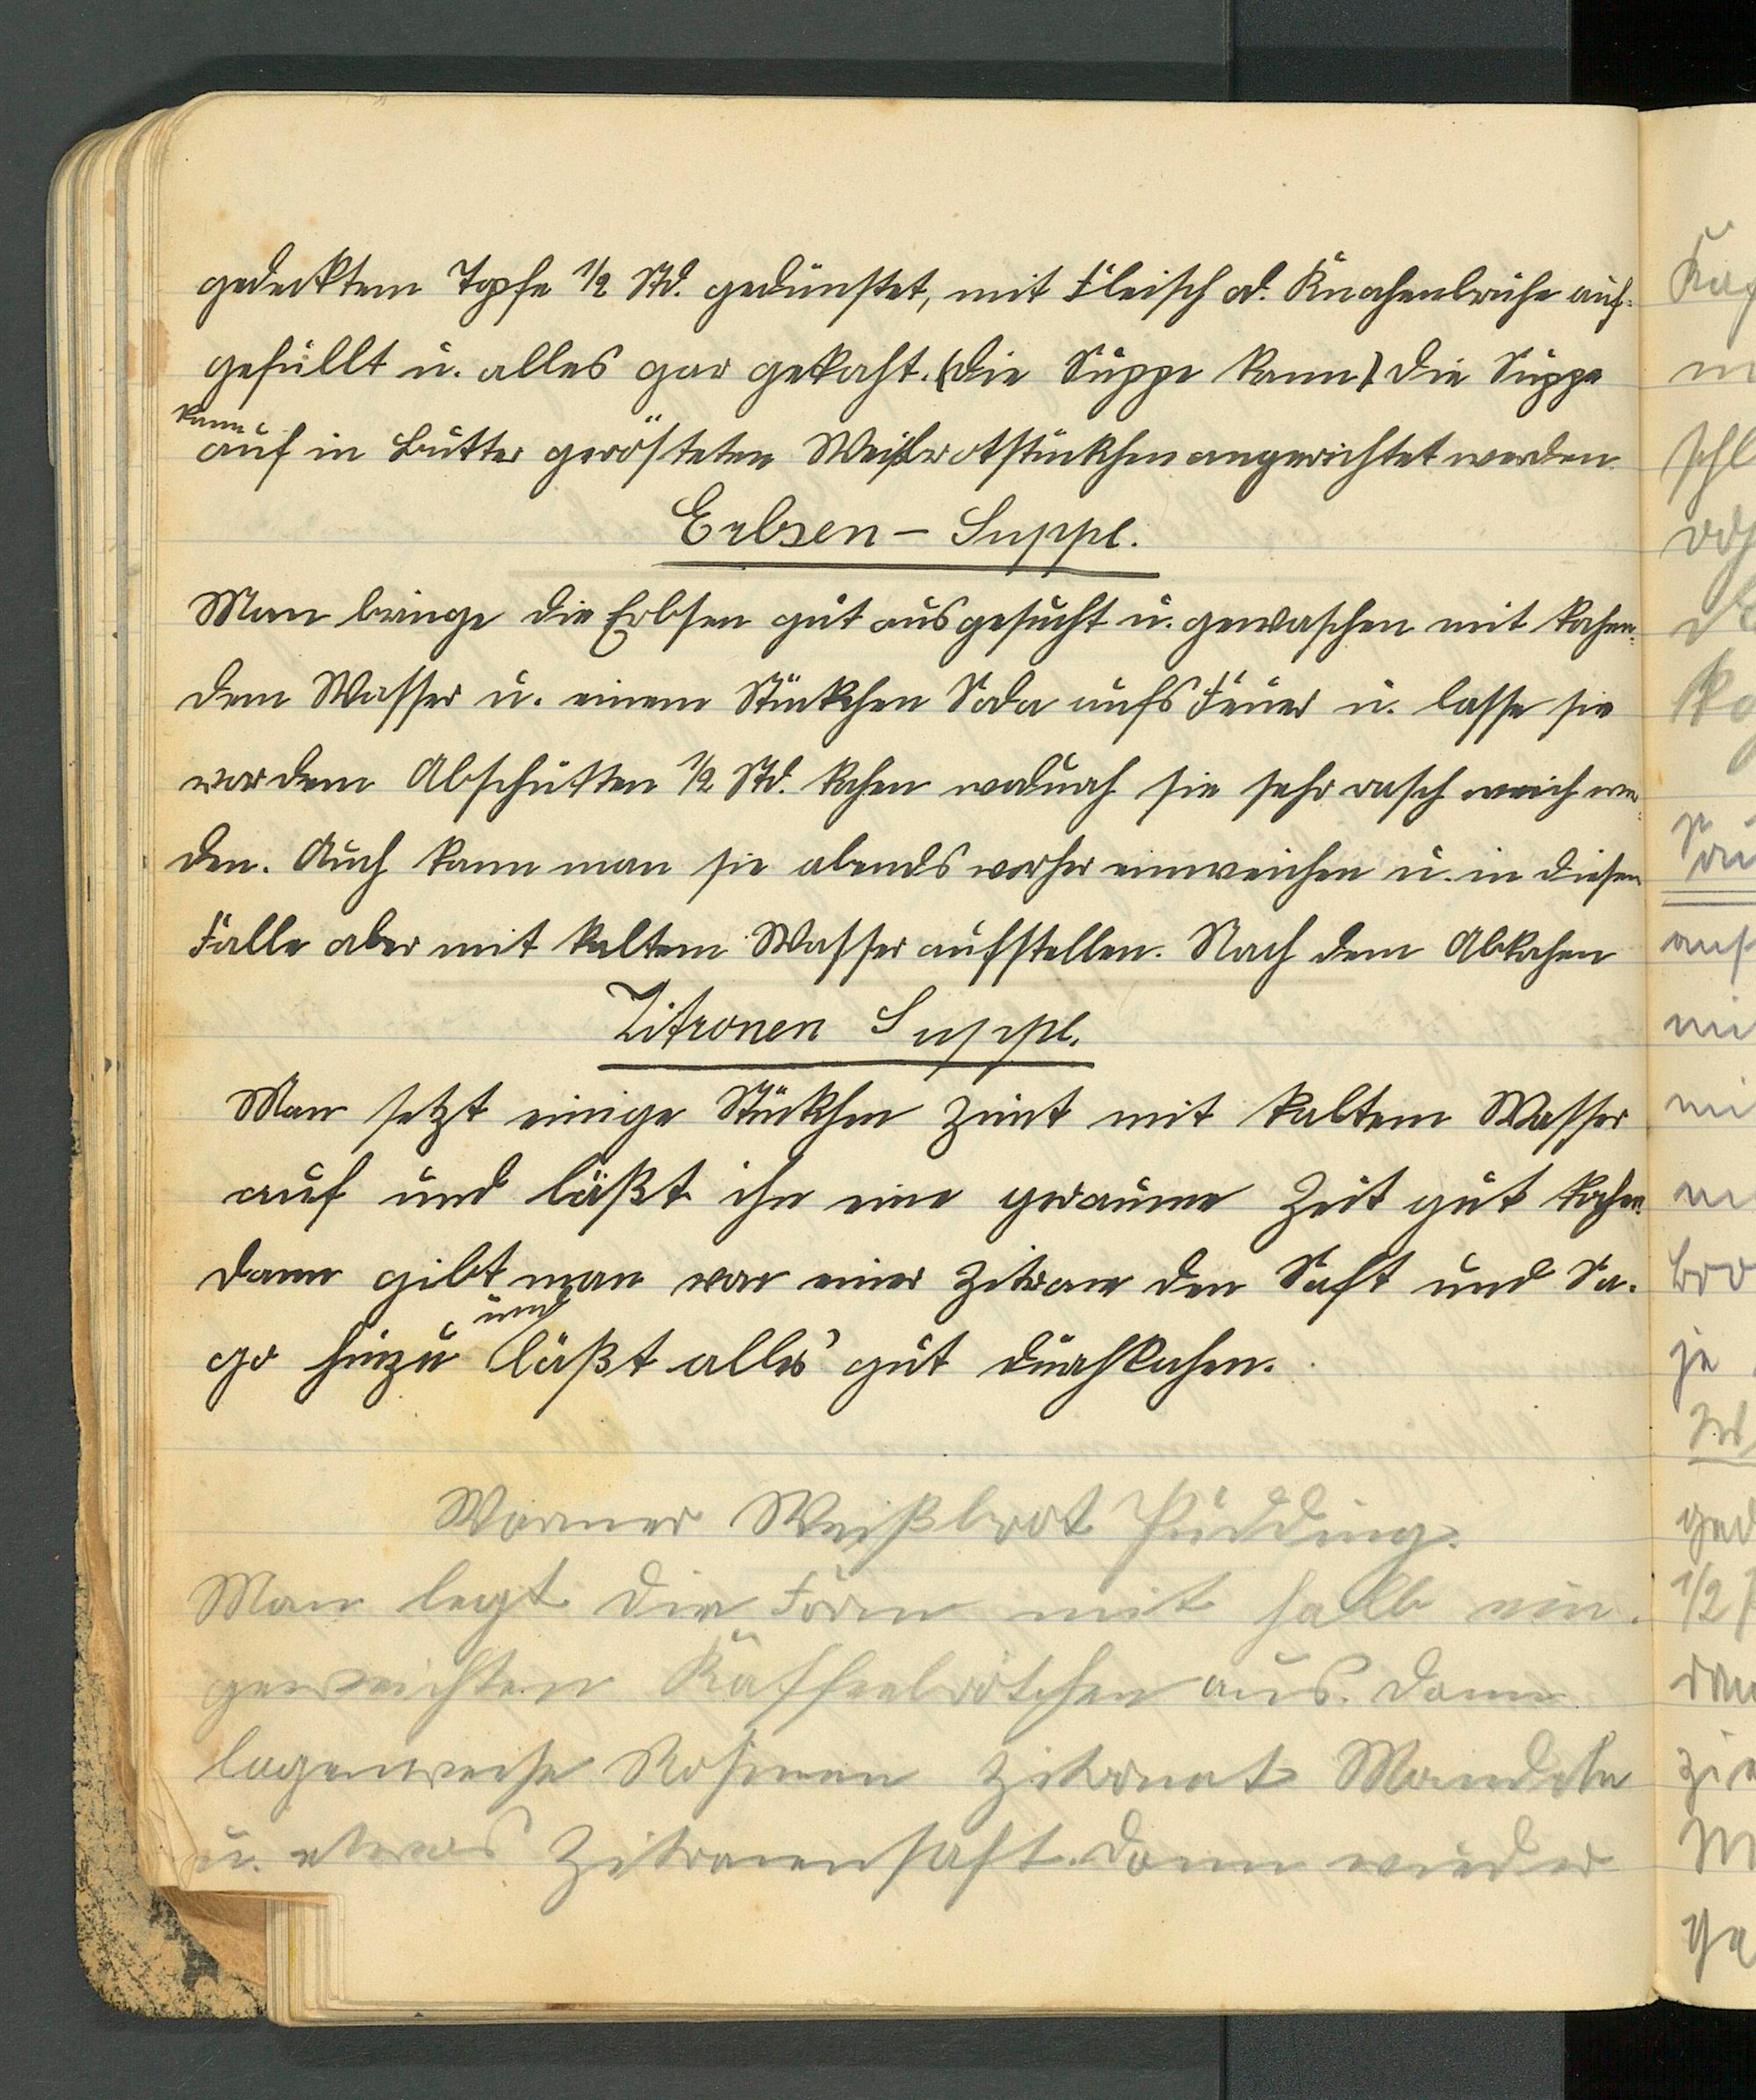 gedecktem Topfe 1/2 Std. gedünstet, mit Fleisch od. Knochenbrühe auf-
gefüllt u. alles gar gekocht. (die Suppe kann) Die Suppe
kann
auf in Butter gerösteten Weißbrotstückchen angerichtet werden.
Erbsen - Suppe.
Man bringe die Erbsen gut ausgesucht u. gewaschen mit kochen-
dem Wasser u. einem Stückchen Soda aufs Feuer u. lasse sie
vor dem Abschütten 1/2 Std. kochen wodurch sie sehr rasch weich wer-
den. Auch kann man sie abends vorher einweichen u. in diesem
Falle aber mit kaltem Wasser aufstellen. Nach dem Abkochen
Zitronen Suppe.
Man setzt einige Stückchen Zimt mit kaltem Wasser
auf und läßt ihn eine geraume Zeit gut kochen.
dann gibt man von einer Zitrone den Saft und Sa-
und
go hinzu läßt alles gut durchkochen.
Warmer Weißbrot Pudding.
Man legt die Form mit halb ein-
geweichten Kaffeebrötchen aus. Dann
lagenweise Rosinen Zitronat Mandeln
u. etwas Zitronensaft. Dann wieder